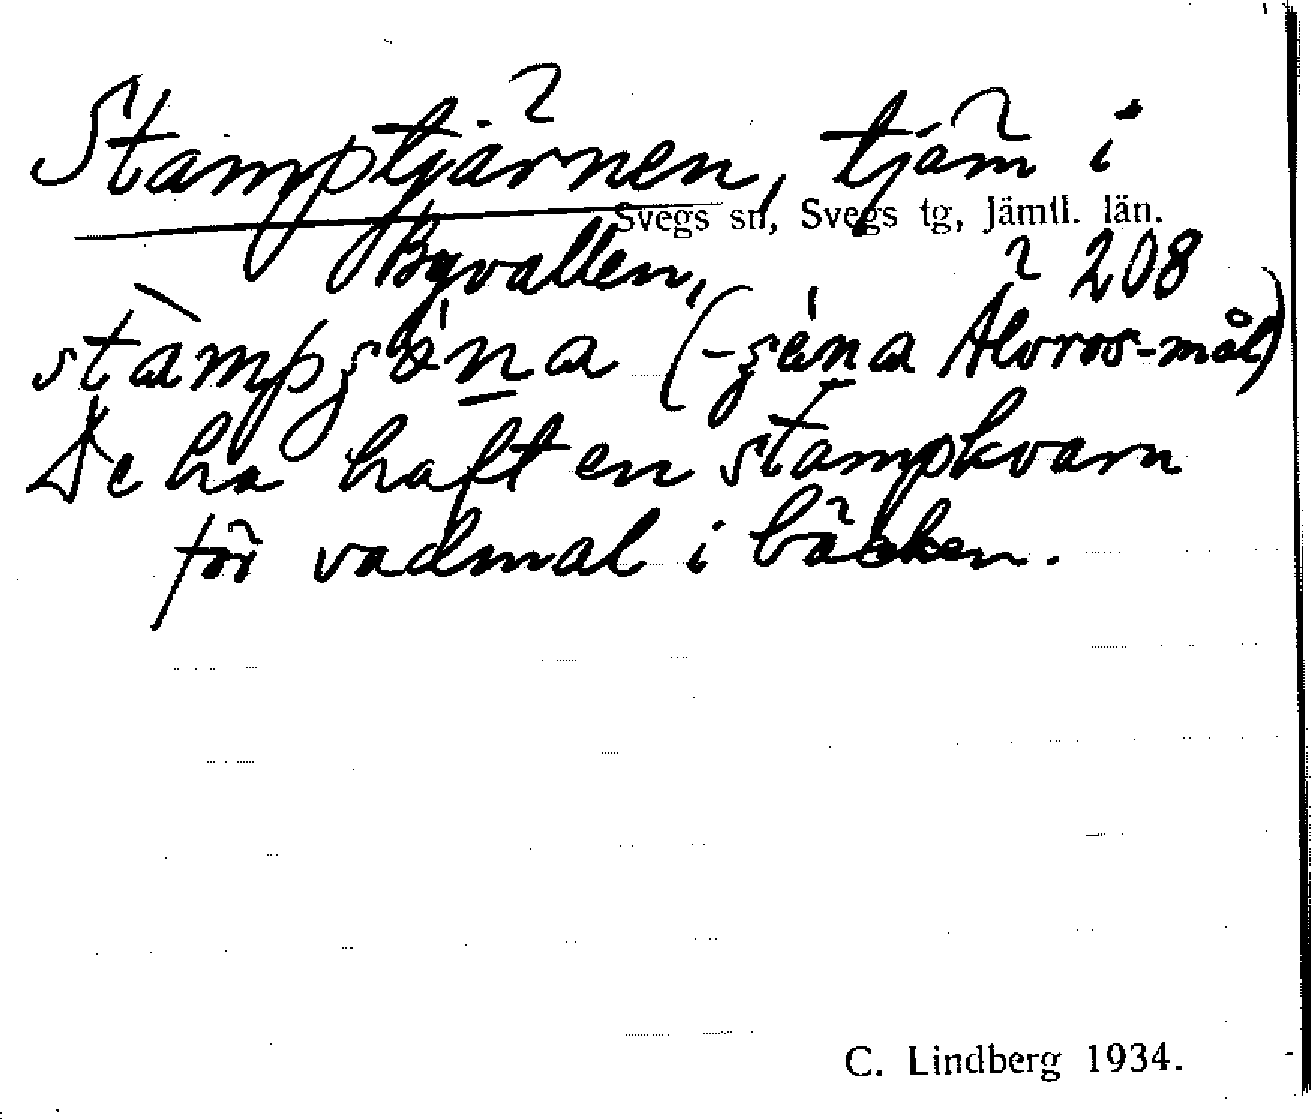 Stamptjärnen, tjärn i
Svegs sn, Svegs tg, Jämtl. län.
Byvallen, 208
stàmpʒǿna (-ʒéna Älvros-mål)
De ha haft en stampkvarn
för vadmal i bäcken.
C. Lindberg 1934.